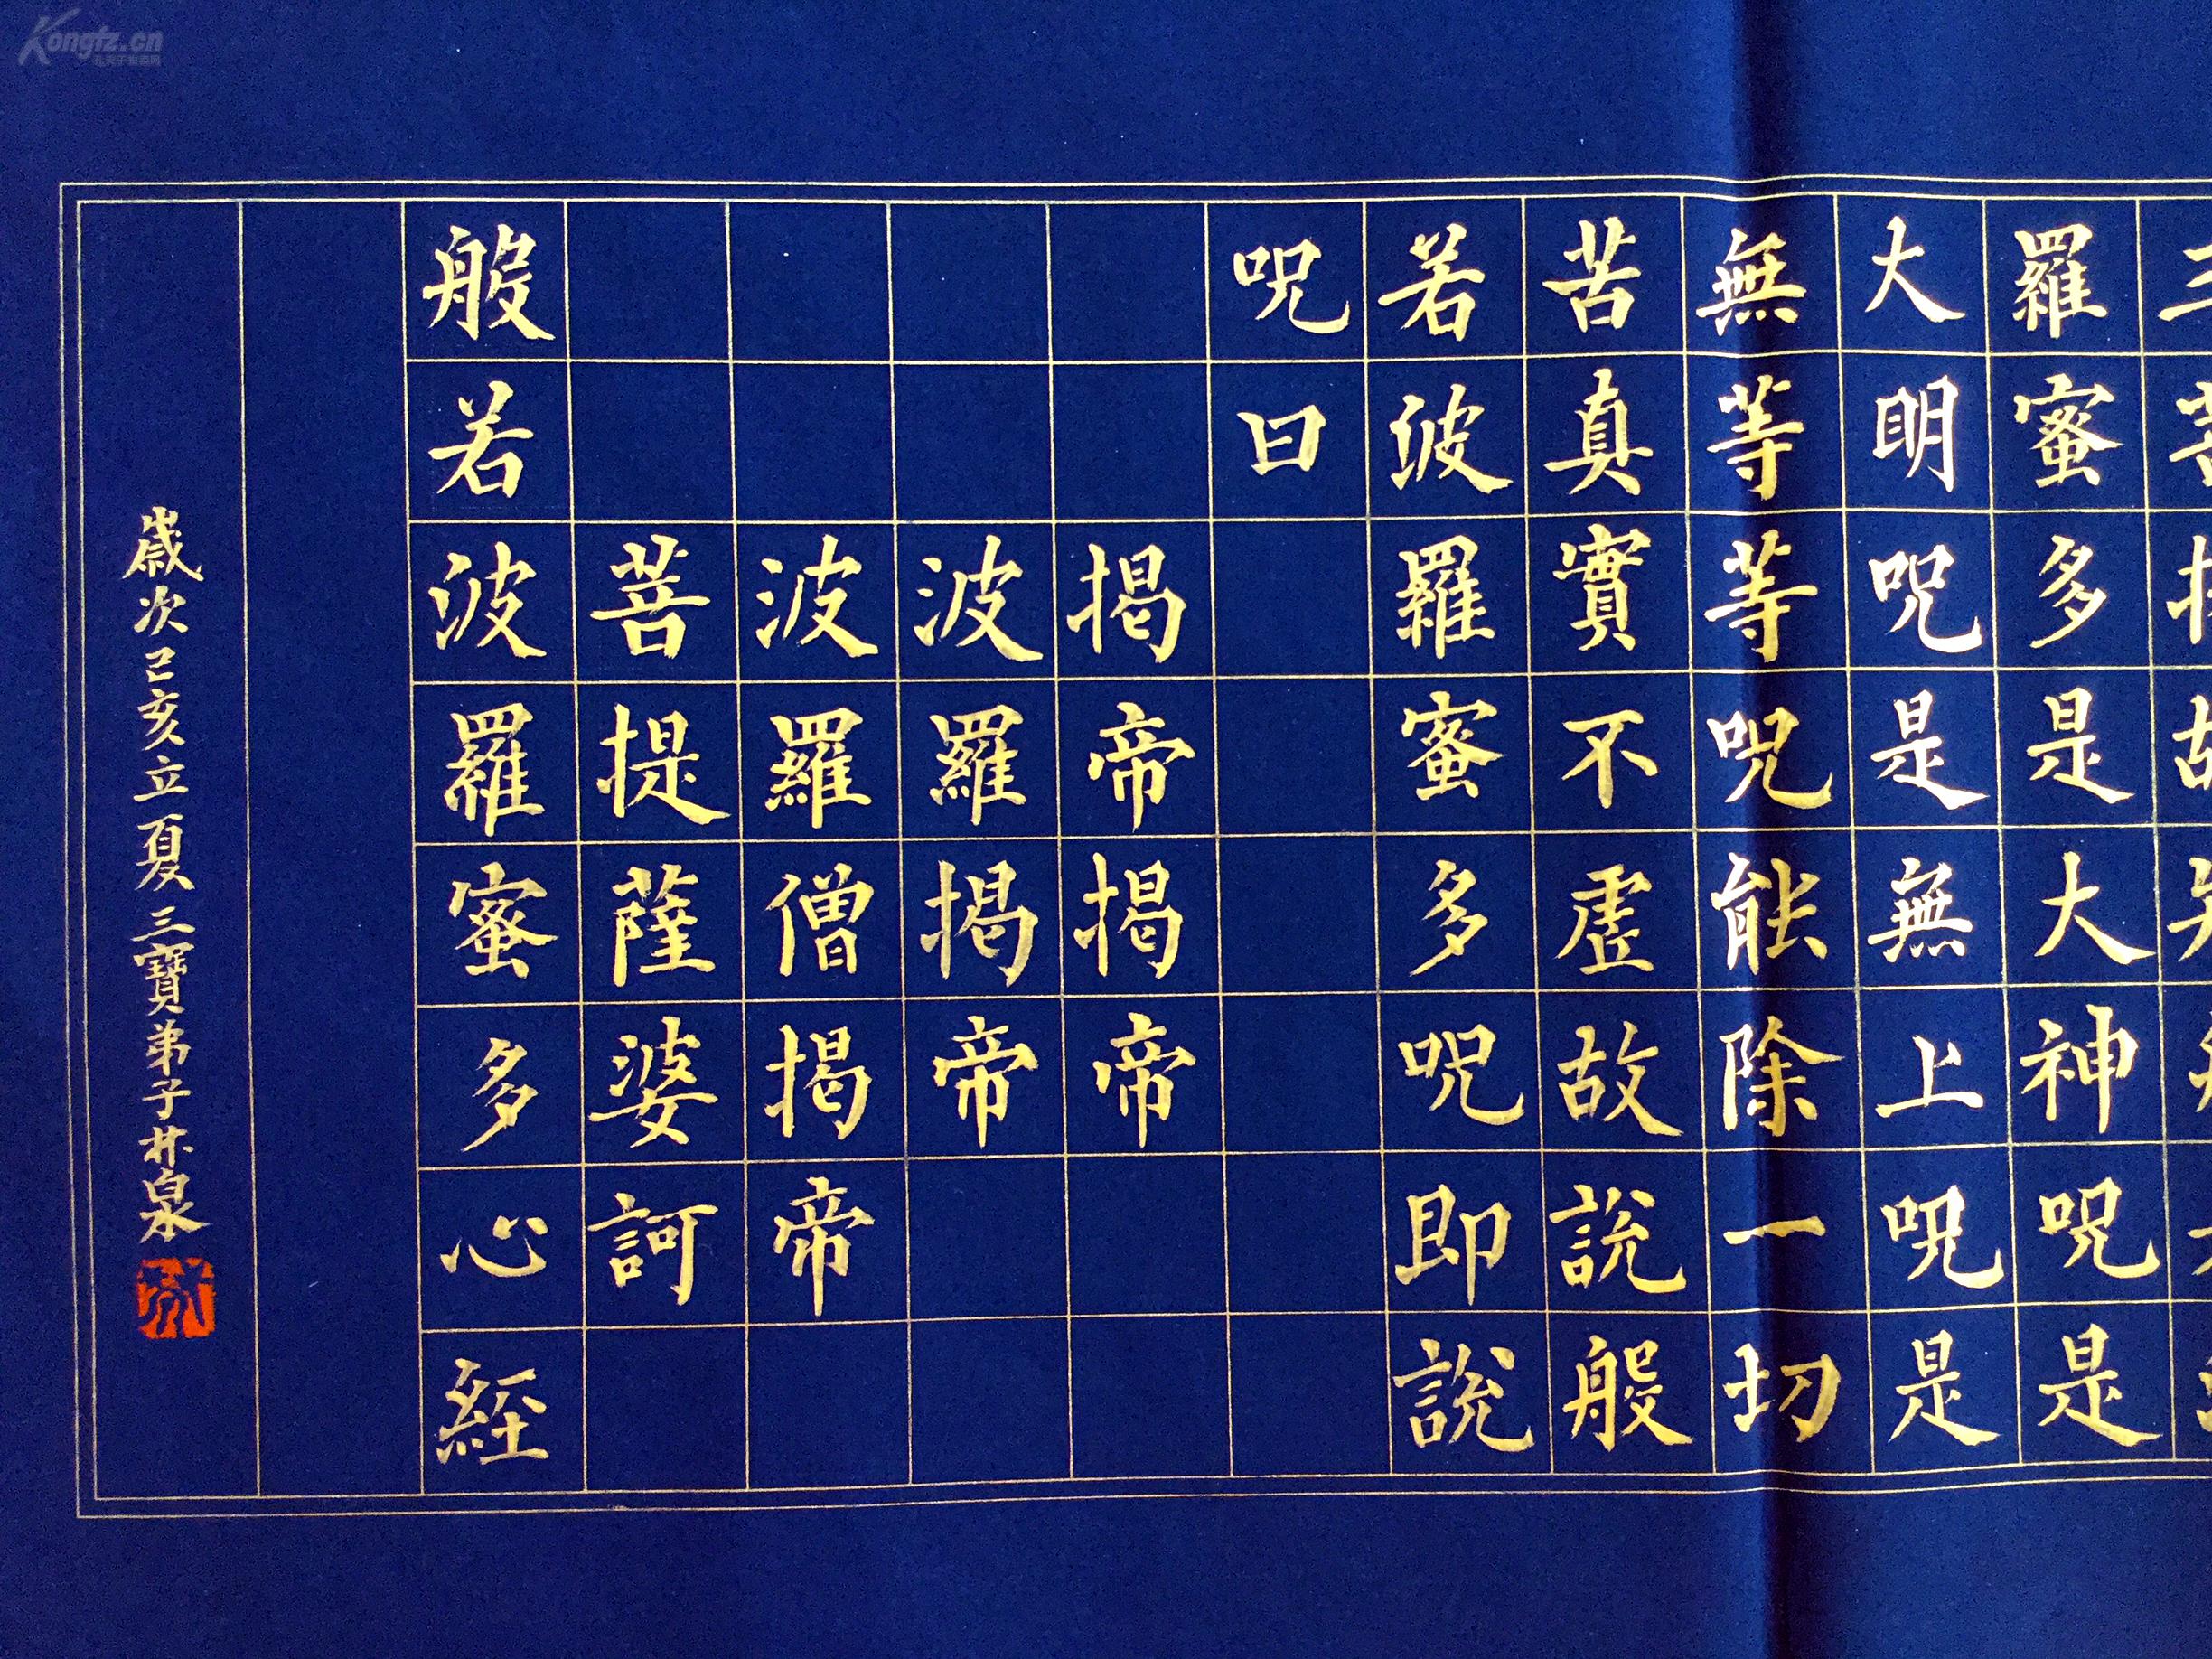 羅蜜多是大神呪是
大明呪是無上呪是
無等等呪能除一切
苦真實不虛故說般
若波羅蜜多呪即說
呪曰
揭帝揭帝
波羅揭帝
波羅僧揭帝
菩提薩婆訶
般若波羅蜜多心經
歲次己亥立夏三寶弟子林泉
Kongfz.cn